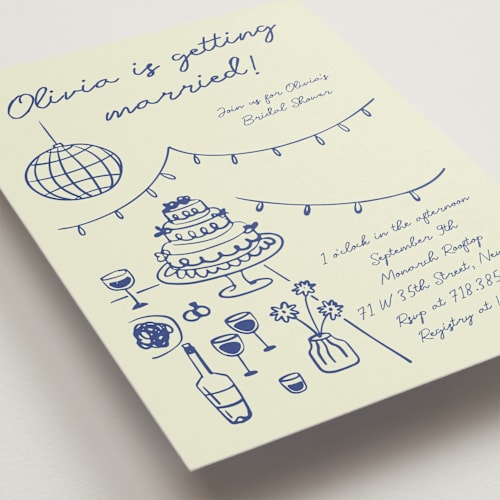 Olivia is getting
married!
Join us for Olivia's
Bridal Shower
1 o'clock in the afternoon
September 9th
Monarch Rooftop
71 W 35th Street, New
Rsvp at 718.385
Registry at